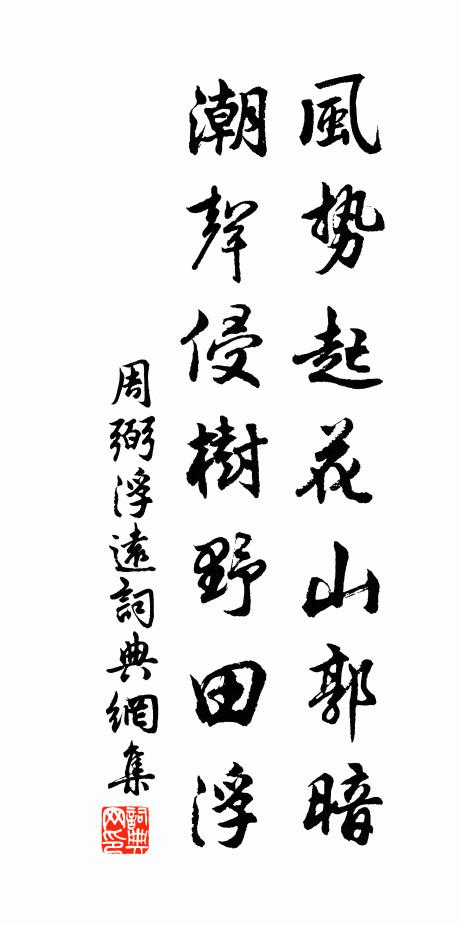 風勢起花山郭暗
潮聲侵樹野田浮
周弼浮遠詞典網集
詞典网印